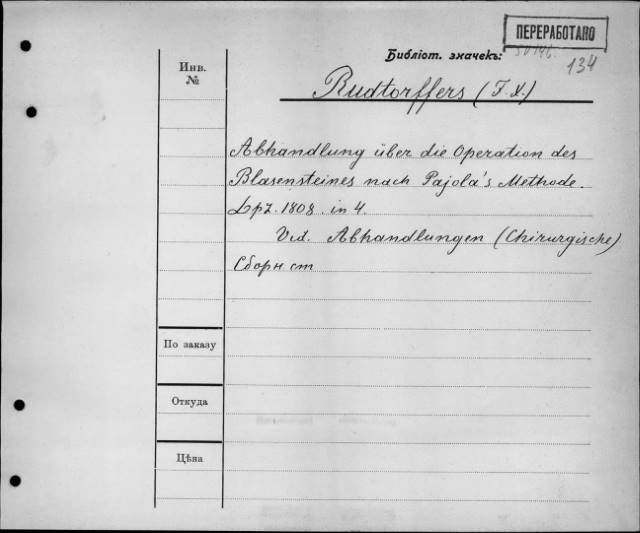 ПЕРЕРАБОТАНО
Библіот. значекъ:
134
Инв.
№
Rudtorffers (F. X.)
Abhandlung über die Operation des
Blasensteines nach Pajola's Methode.
Lpz. 1808. in 4.
Vid. Abhandlungen (Chirurgische)
Сборн ст
По заказу
Откуда
Цѣна